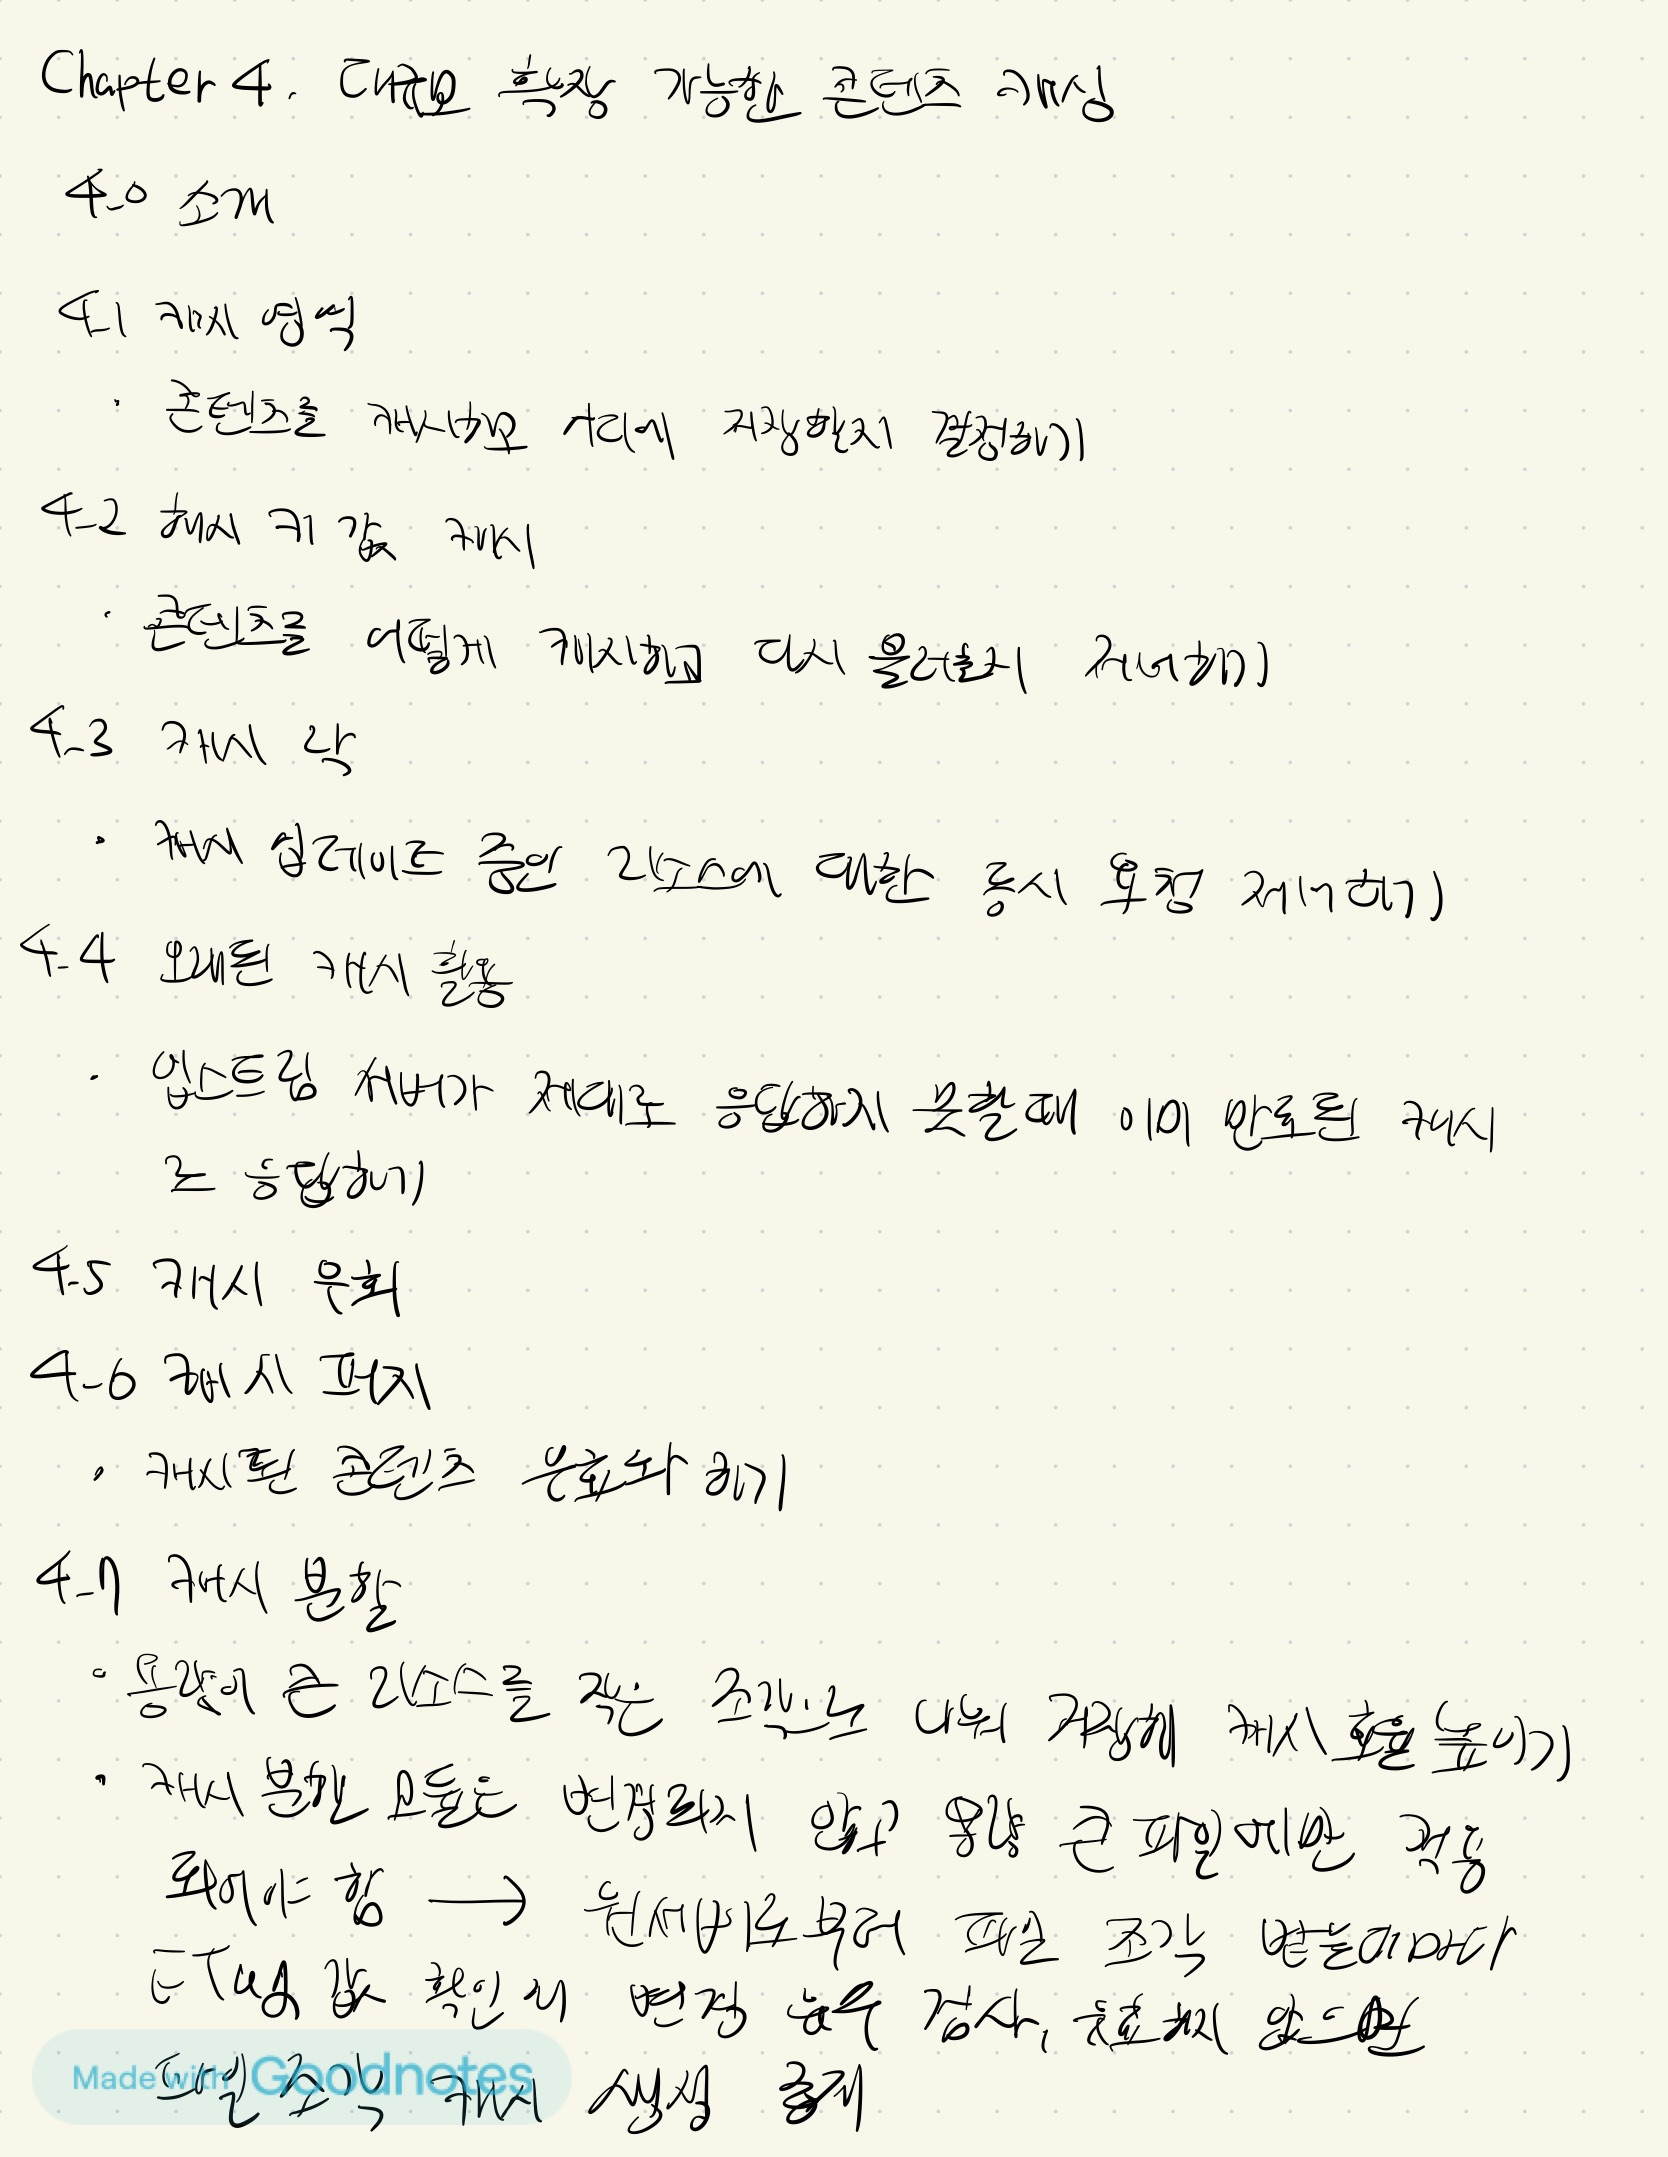 Chapter 4. 대규모 확장 가능한 콘텐츠 캐싱
4-0 소개
4-1 캐시 영역
· 콘텐츠를 캐시하고 어디에 저장할지 결정하기
4-2 해시 키 값 캐시
· 콘텐츠를 어떻게 캐시하고 다시 불러올지 제어하기
4-3 캐시 락
· 캐시 업데이트 중인 리소스에 대한 동시 요청 제어하기
4-4 오래된 캐시 활용
· 업스트림 서버가 제대로 응답하지 못할때 이미 만료된 캐시
로 응답하기
4-5 캐시 우회
4-6 캐시 퍼지
· 캐시된 콘텐츠 무효화 하기
4-7 캐시 분할
· 용량이 큰 리소스를 작은 조각으로 나눠 저장해 캐시 효율 높이기
· 캐시 분할 모듈은 변경되지 않고 용량 큰 파일에만 적용
되어야 함 → 원서버로부터 파일 조각 받는
ETag 값 확인 변경 검사, 않으면
파일 조각 캐시 생성 중지
Made with Goodnotes